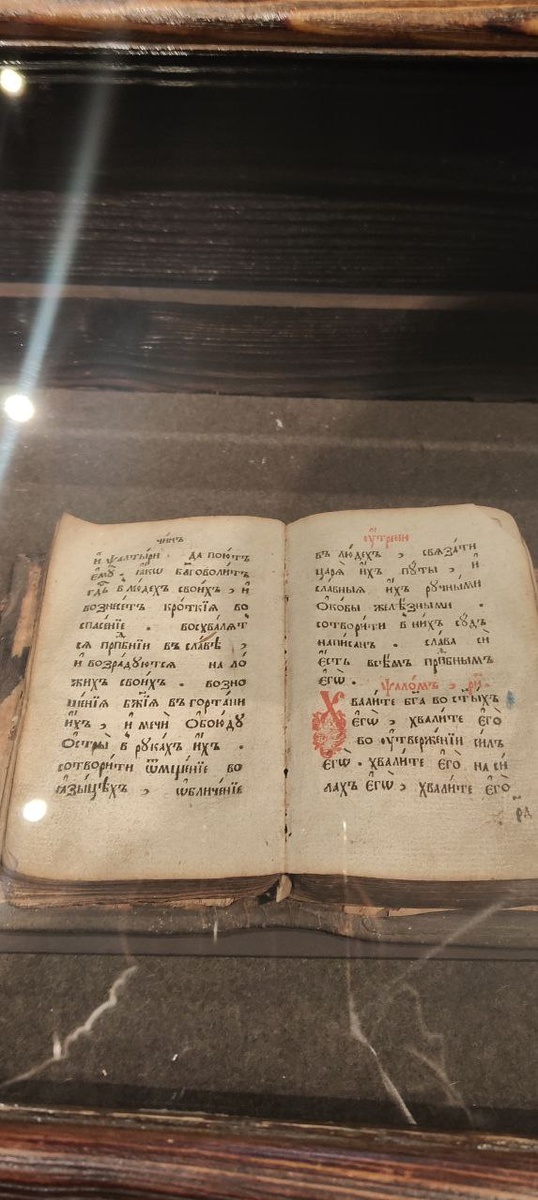 чи́нъ
и҆ ѱалты́ри . да пою́тъ
є҆мꙋ̀ ꙗ҆́кѡ бл҃говоли́тъ
гдⷭ҇ь в лю́дехъ свои́хъ , и҆
вознесе́тъ кро́ткїѧ во
спасе́нїе . восхва́лѧт
сѧ прпⷣбнїи въ сла́вѣ ,
и҆ возра́дꙋютсѧ на ло
жихъ свои́хъ . возно
ше́нїѧ бж҃їѧ въ горта́ни
и҆́хъ , и҆ мечѝ ѻ҆бою́дꙋ
ѻ҆стры̀ в рꙋка́хъ и҆́хъ .
сотвори́ти ѿмще́нїе во
ꙗ҆зы́цѣхъ , ѡ҆бличе́нїе
ѹ҆́трени
въ лю́дехъ , свѧза́ти
царѧ̀ и҆́хъ пꙋ́ты , и҆
сла́вныѧ и҆́хъ рꙋ́чными
ѻ҆ко́вы желѣ́зными .
сотвори́ти в ни́хъ сꙋ́дъ
напи́санъ . сла́ва сѝ
є҆́сть всѣ́мъ прпⷣбнымъ
є҆гѡ̀ . ѱало́мъ , рн҃
Хвали́те бг҃а во ст҃ы́хъ
є҆гѡ̀ , хвали́те є҆го̀
во ѹ҆твержє́нїи си́лъ
є҆гѡ̀ . хвали́те є҆го̀ на си́
лахъ є҆гѡ̀ , хвали́те є҆го̀
рд